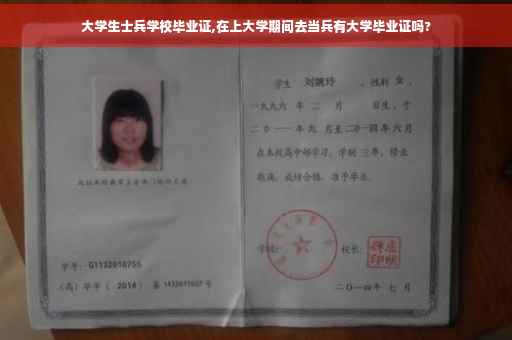 大学生士兵学校毕业证,在上大学期间去当兵有大学毕业证吗?
学生 刘婉玲 ，性别 女 ，
一九九六 年 二 月 日生，于
二〇一一年九 月至二〇一四年 六 月
在本校高中部学习，学制 三年，修业
期满，成绩合格，准予毕业。
学号： G1132010755
学校：
校长：
（高）毕字（ 2014 ）第 1432011027 号
二〇一四年 七 月